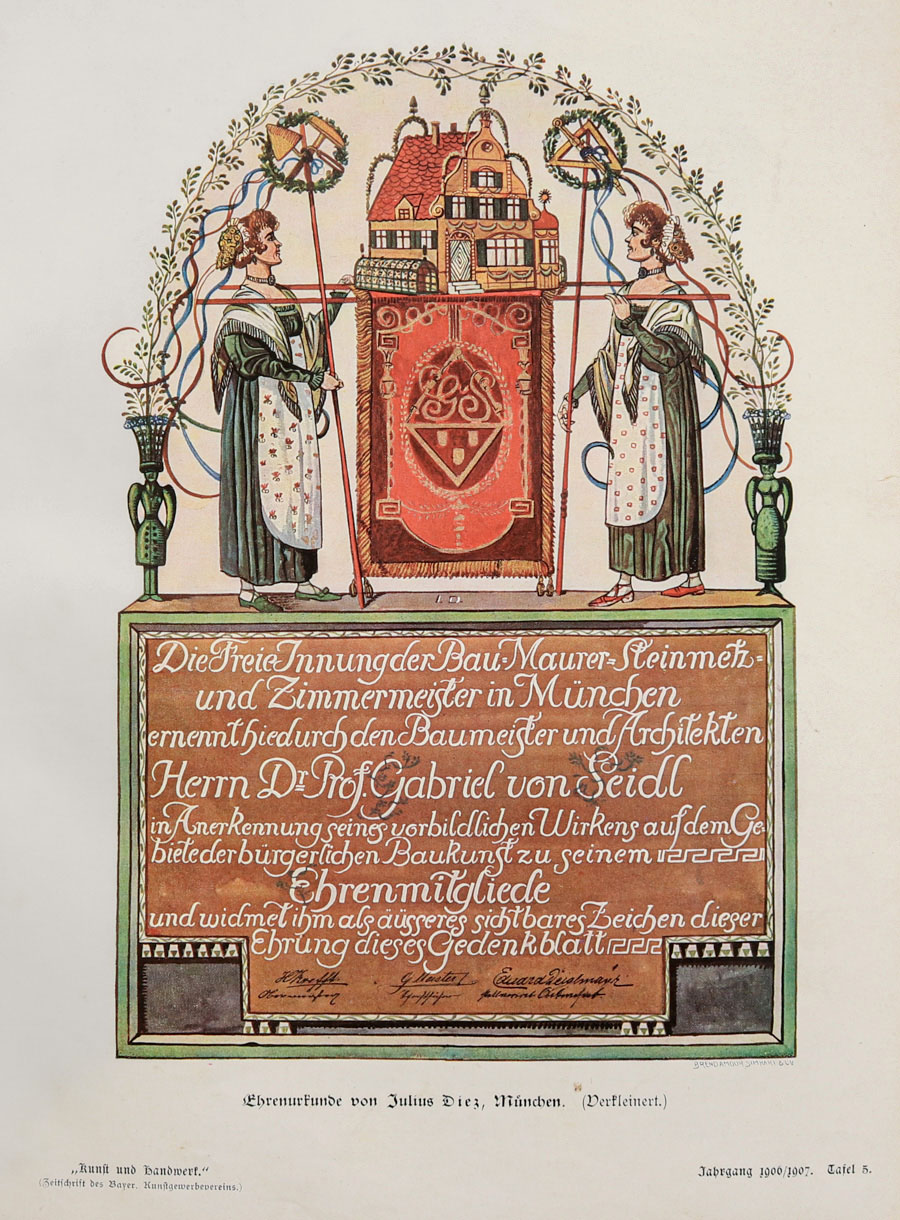 Die Freie Innung der Bau-Maurer-Steinmetz-
und Zimmermeister in München
ernennt hiedurch den Baumeister und Architekten
Herrn Dr. Prof. Gabriel von Seidl
in Anerkennung seines vorbildlichen Wirkens auf dem Ge-
biete der bürgerlichen Baukunst zu seinem
Ehrenmitgliede
und widmet ihm als äusseres sichtbares Zeichen dieser
Ehrung dieses Gedenkblatt
Ehrenurkunde von Julius Diez, München. (Verkleinert.)
„Kunst und Handwerk.“
(Zeitschrift des Bayer. Kunstgewerbevereins.)
Jahrgang 1906/1907. Tafel 5.